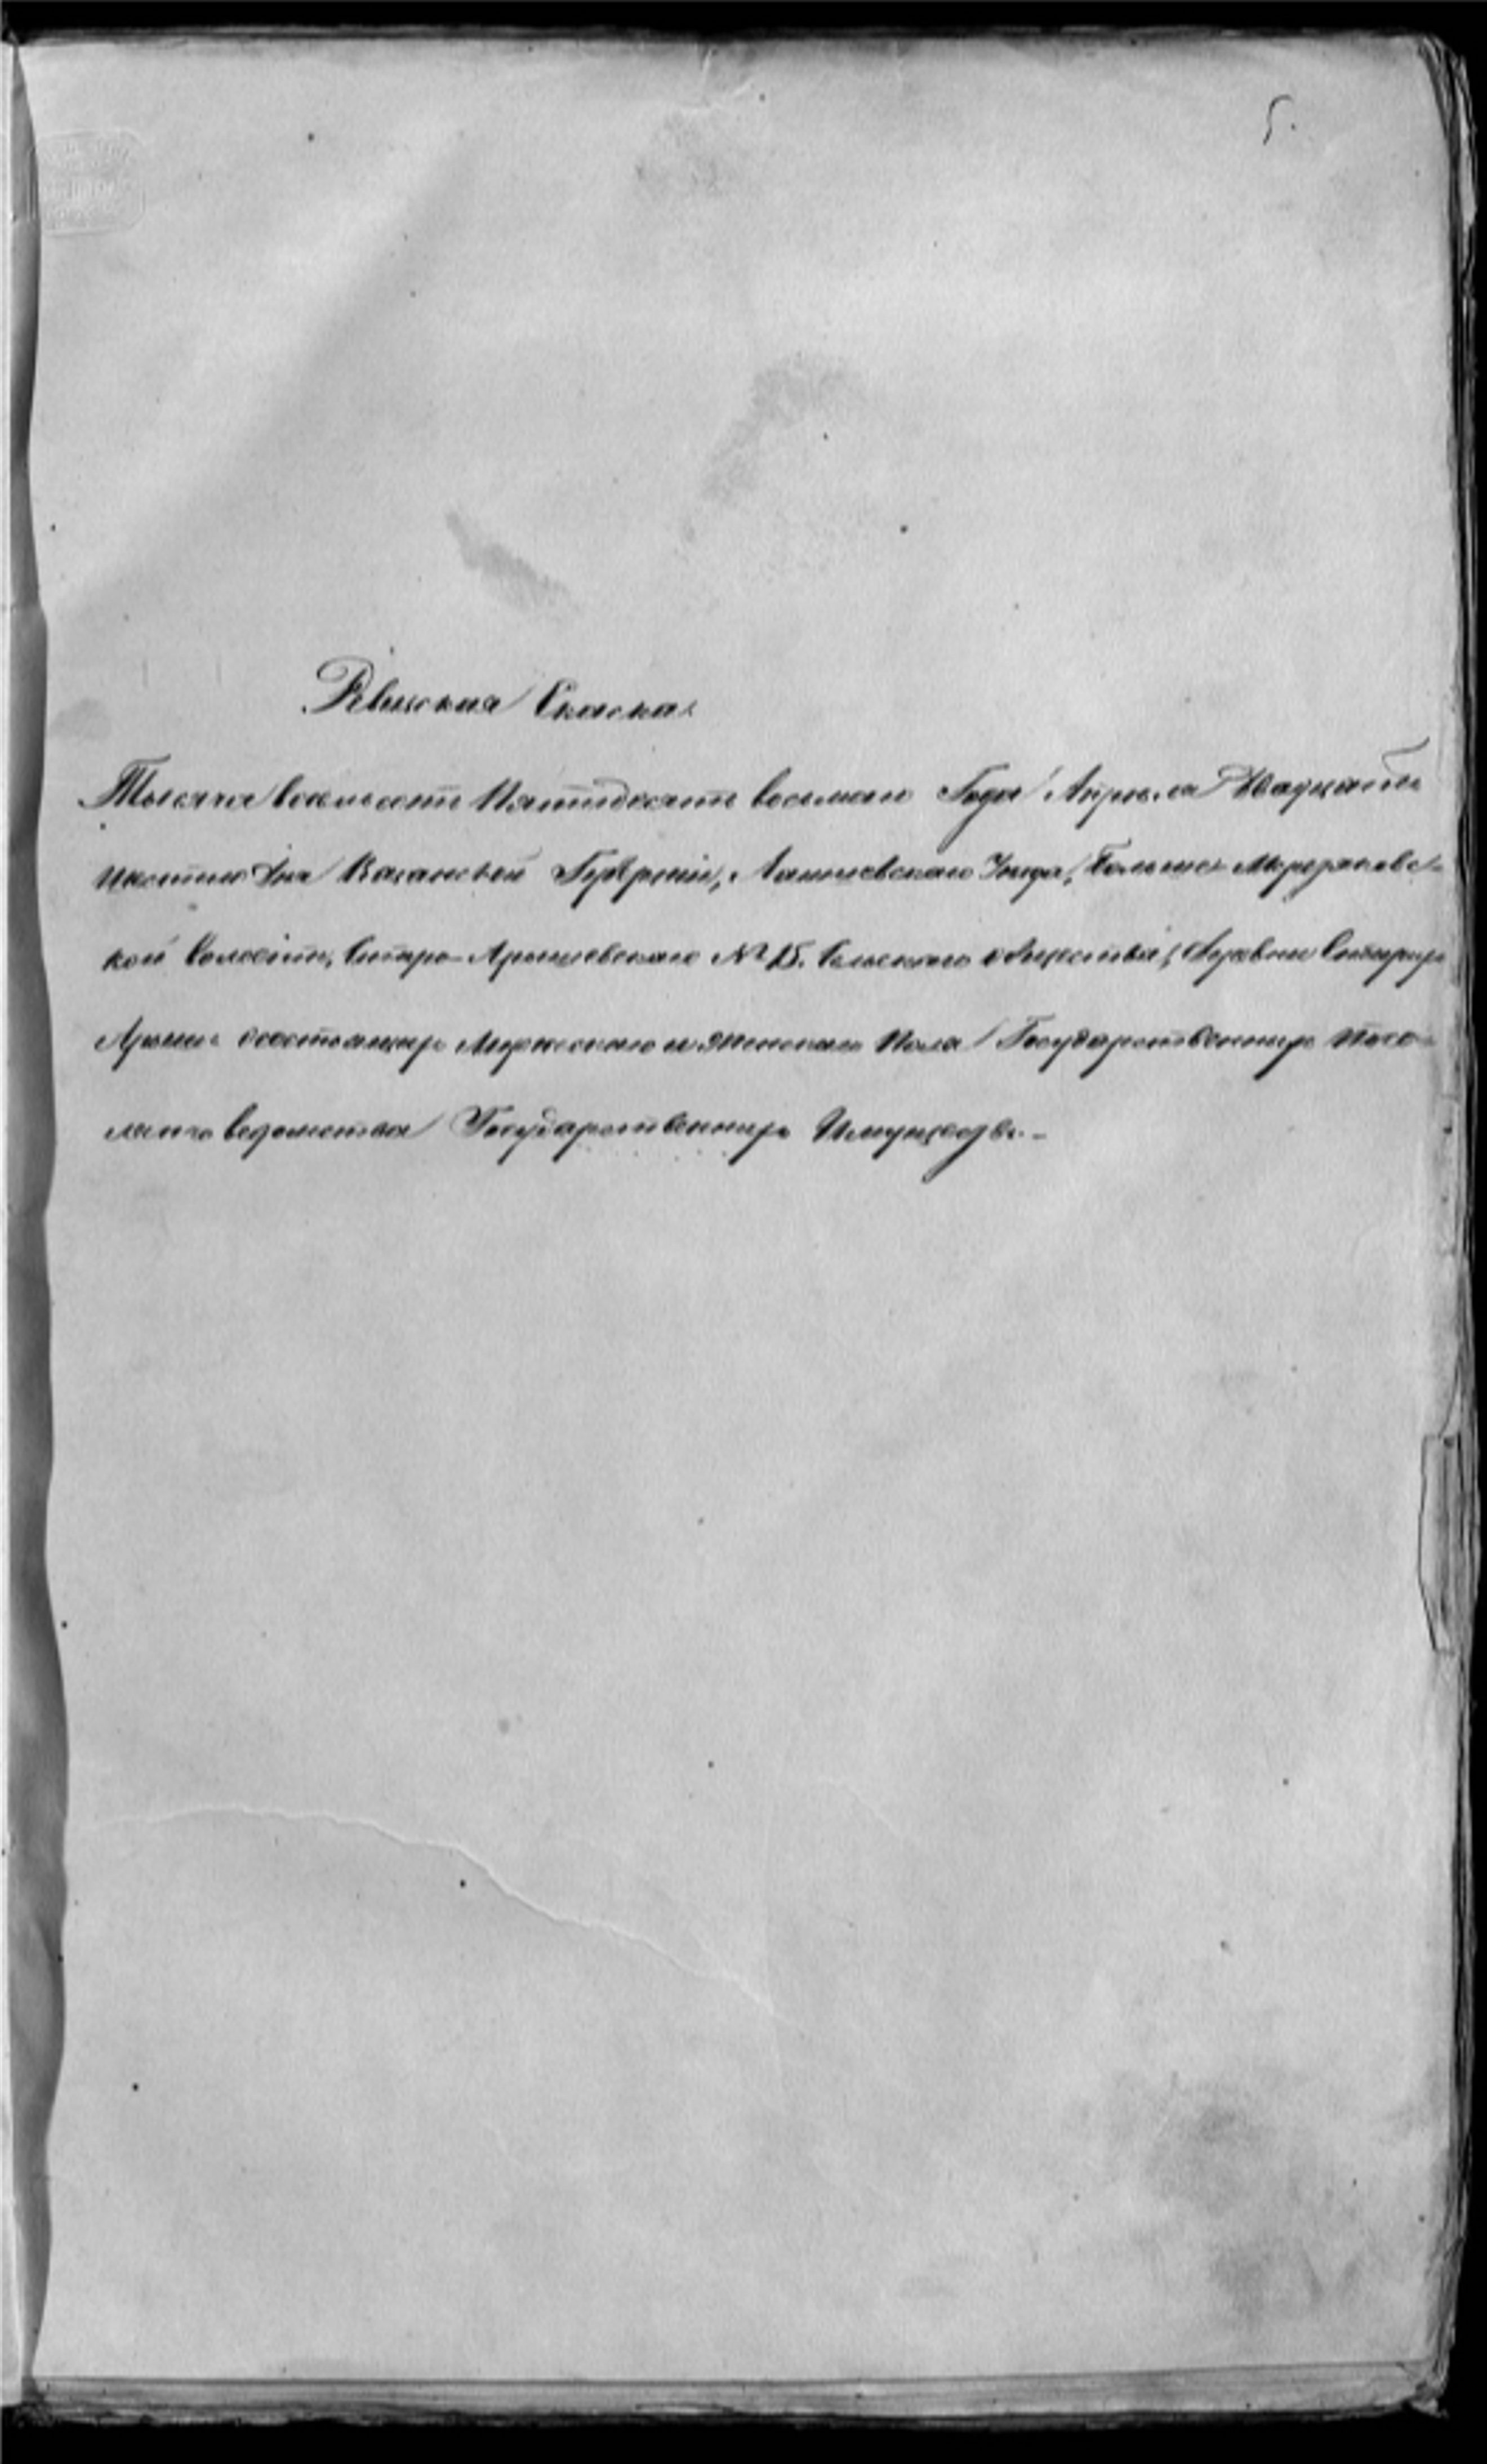 5.
Ревизская Сказка
Тысяча восемьсот Пятидесят восьмаго Года Апреля Двадцать
шестаго Дня Казанской Губерніи, Лаишевскаго Уезда, Больше-Меретяковс-
кой волости, Старо-Арышевскаго № 15. Сельскаго общества, Деревни Старыхъ
Арышъ состоящихъ Мужескаго и Женскаго Пола Государственныхъ Посе-
лянъ ведомства Государственныхъ Имуществъ.-